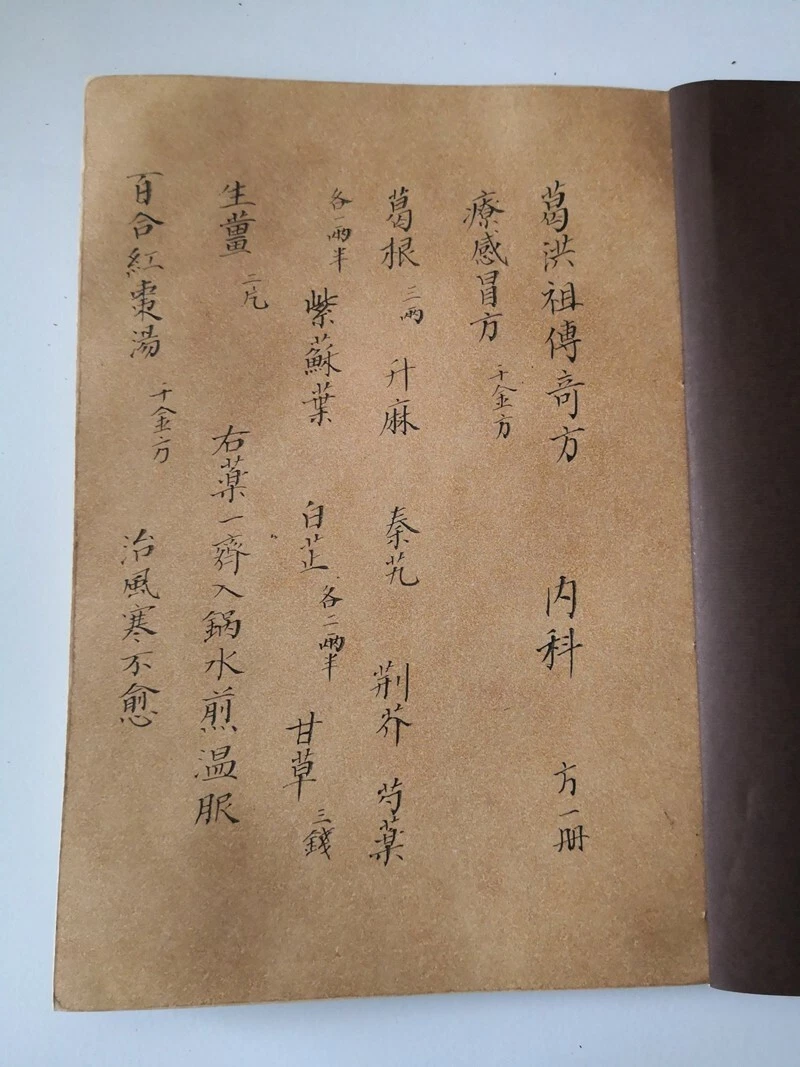 葛洪祖傳奇方 内科 方一册
療感冒方 千金方
葛根 三兩 升麻 秦艽 荆芥 芍藥
各一兩半 紫蘇葉 白芷 各二兩半 甘草 三錢
生薑 二片 右藥一齊入鍋水煎温服
百合紅棗湯 千金方 治風寒不愈